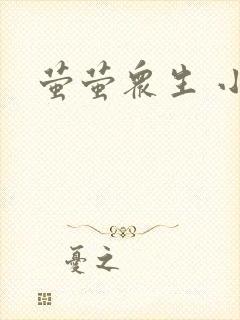 萤萤众生 小
憂之